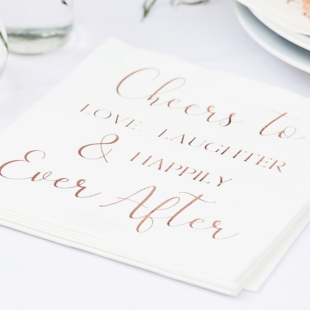 Cheers to
LOVE, LAUGHTER
& HAPPILY
Ever After